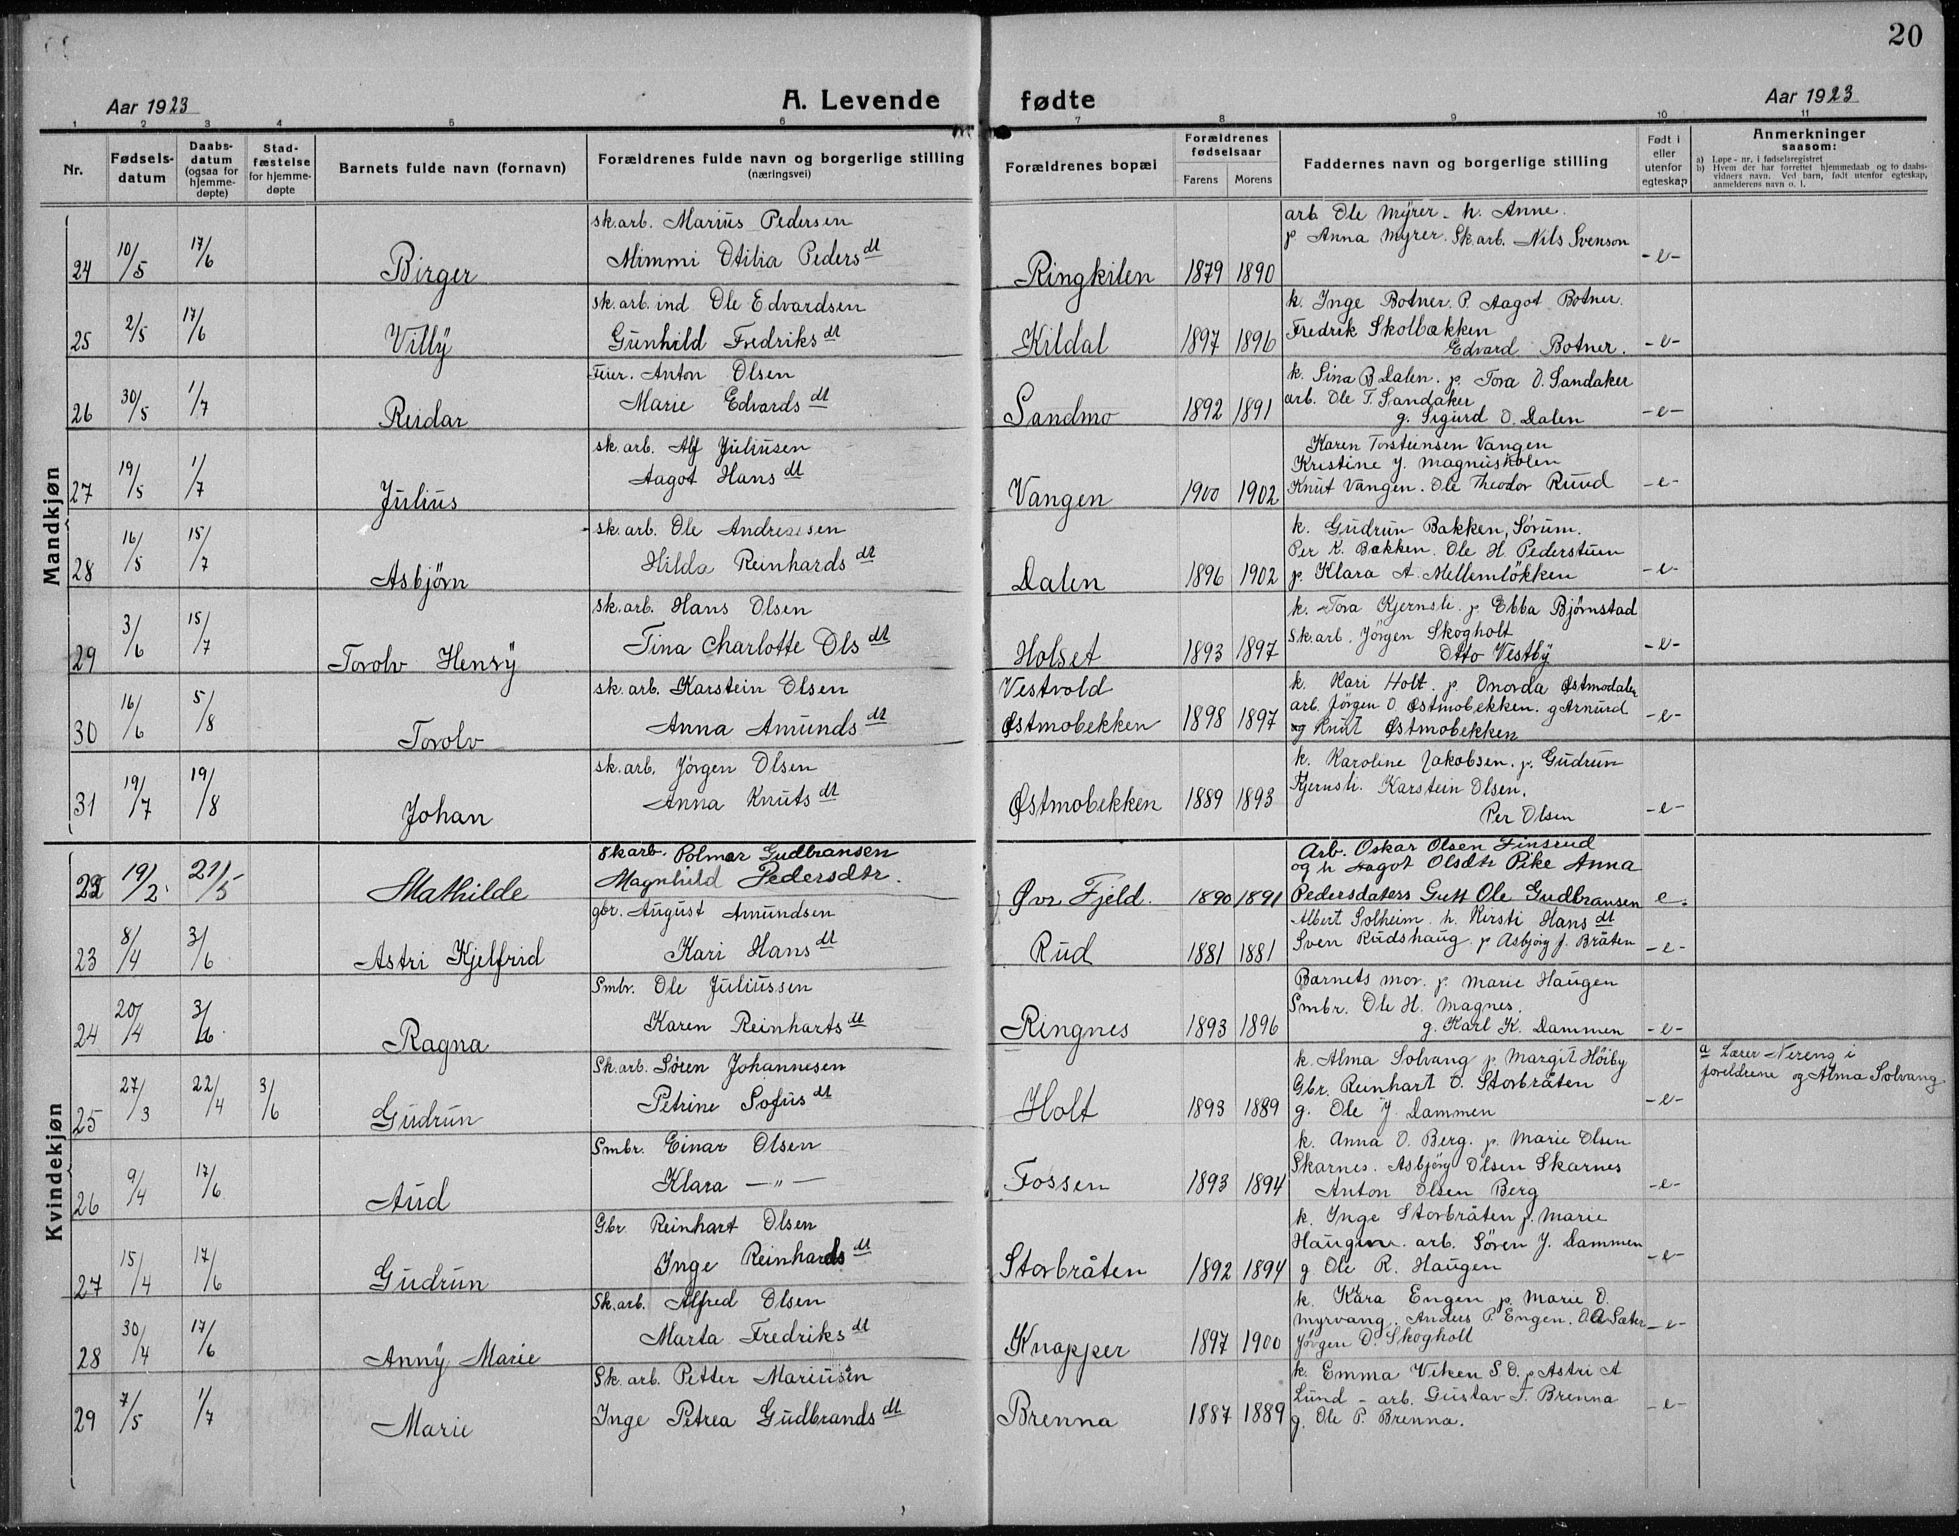 20
Aar 1923
A. Levende fødte
Aar 1923
1 2 3 4 5 6 7 8 9 10 11
Nr.
Fødsels-
datum
Daabs-
datum
(ogsaa for
hjemme-
døpte)
Stad-
fæstelse
for hjemme-
døpte
Barnets fulde navn (fornavn)
Forældrenes fulde navn og borgerlige stilling
(næringsvei)
Forældrenes bopæl
Forældrenes
fødselsaar
Farens Morens
Faddernes navn og borgerlige stilling
Født i
eller
utenfor
egteskap
Anmerkninger
saasom:
a) Løpe-nr. i fødselsregistret
b) Hvem der har forrettet hjemmedaab og to daabs-
vidners navn. Ved barn, født utenfor egteskap,
anmelderens navn o. l.
Mandkjøn
24 10/5 17/6 Birger
sk.arb. Marius Pedersen
Mimmi Otilia Pedersdt
Ringkilen 1879 1890
arb. Ole Myrer - h. Anne.
p Anna Myrer. Sk.arb. Nils Svenson
-e-
25 2/5 17/6 Villÿ
sk.arb. ind Ole Edvardsen
Gunhild Fredriksdt
Kildal 1897 1896
k. Inge Botner. P. Aagot Botner.
Fredrik Skolbækken
Edvard Botner.
-e-
26 30/5 1/7 Reidar
Feier. Anton Olsen
Marie Edvardsdt
Sandmo 1892 1891
k. Sina B Dalen. p Tora O. Sandaker
arb. Ole T. Sandaker
g. Sigurd O. Dalen
-e-
27 19/5 1/7 Julius
sk.arb. Alf Juliusen
Aagot Hansdt
Vangen 1900 1902
Karen Torsteinsen Vangen
Kristine J. Magnuskolen
Knut Vangen. Ole Theodor Ruud
-e-
28 16/5 15/7 Asbjørn
sk.arb. Ole Andreasen
Hilda Reinhardsdt
Dalen 1896 1902
k. Gudrun Bakken, Sørum.
Per K. Bakken. Ole H. Pederstuen
p. Klara A. Mellemløkken
-e-
29 3/6 15/7 Torolv Henrÿ
sk.arb. Hans Olsen
Tina Charlotte Olsdt
Holset 1893 1897
k. Tora Kjernsli. p Ebba Bjørnstad
Sk.arb. Jörgen Skogholt
Otto Vestby
-e-
30 16/6 5/8 Torolv
sk.arb. Karstein Olsen
Anna Amundsdt
Vestvold
Østmobekken 1898 1897
k. Kari Holt. p Onorda Østmodalen
arb. Jörgen O Østmobekken. g Arnurd
og Knut Østmobekken
-e-
31 19/7 19/8 Johan
sk.arb. Jörgen Olsen
Anna Knutsdt
Østmobekken 1889 1893
k. Karoline Jakobsen. p. Gudrun
Kjernsli. Karstein Olsen.
Per Olsen
-e-
Kvindekjøn
22 19/2 21/5 Mathilde
Skarb. Polmar Gudbransen
Magnhild Pedersdtr.
Øvr Fjeld. 1890 1891
Arb. Oskar Olsen Finsrud
og h Aagot Olsdtr Pike Anna
Pedersdaters Gutt Ole Gudbransen
e.
23 8/4 3/6 Astri Kjelfrid
gbr. August Amundsen
Kari Hansdt
Rud 1881 1881
Albert Solheim h. Kirsti Hansdt
Sven Rudshaug. p Asbjörg J. Bråten
-e-
24 20/4 3/6 Ragna
Smbr. Ole Juliussen
Karen Reinhartsdt
Ringnes 1893 1896
Barnets mor. p. Marie Haugen
Smbr. Ole H. Magnes.
g. Karl K. Dammen
-e-
25 27/3 22/4 3/6 Gudrun
Sk.arb. Søren Johannesen
Petrine Sofusdt
Holt 1893 1889
k. Alma Solvang p. Margit Höiby
Gbr. Reinhart O. Storbråten
g. Ole J. Dammen
-e-
a Lærer Nereng i
foreldrene og Alma Solvang
26 9/4 17/6 Aud
Smbr. Einar Olsen
Klara -"-
Fossen 1893 1894
k. Anna O. Berg. p. Marie Olsen
Skarnes. Asbjörg Olsen Skarnes
Anton Olsen Berg
-e-
27 15/4 17/6 Gudrun
Gbr. Reinhart Olsen
Inge Reinhardsdt
Storbråten 1892 1894
k. Inge Storbråten p. Marie
Haugen. arb. Søren J. Dammen
g Ole R. Haugen
-e-
28 30/4 17/6 Annÿ Marie
Sk.arb. Alfred Olsen
Marta Fredriksdt
Knapper 1897 1900
k. Kara Engen p. Marie O.
Myrvang. Anders P. Engen. Ole Sæter
Jörgen O. Skogholt
-e-
29 7/5 1/7 Marie
Sk.arb. Petter Mariusen
Inge Petrea Gudbrandsdt
Brenna 1887 1889
k. Emma Viken S.O. p Astri A
Lund - arb. Gustav T. Brenna
g. Ole P. Brenna.
-e-